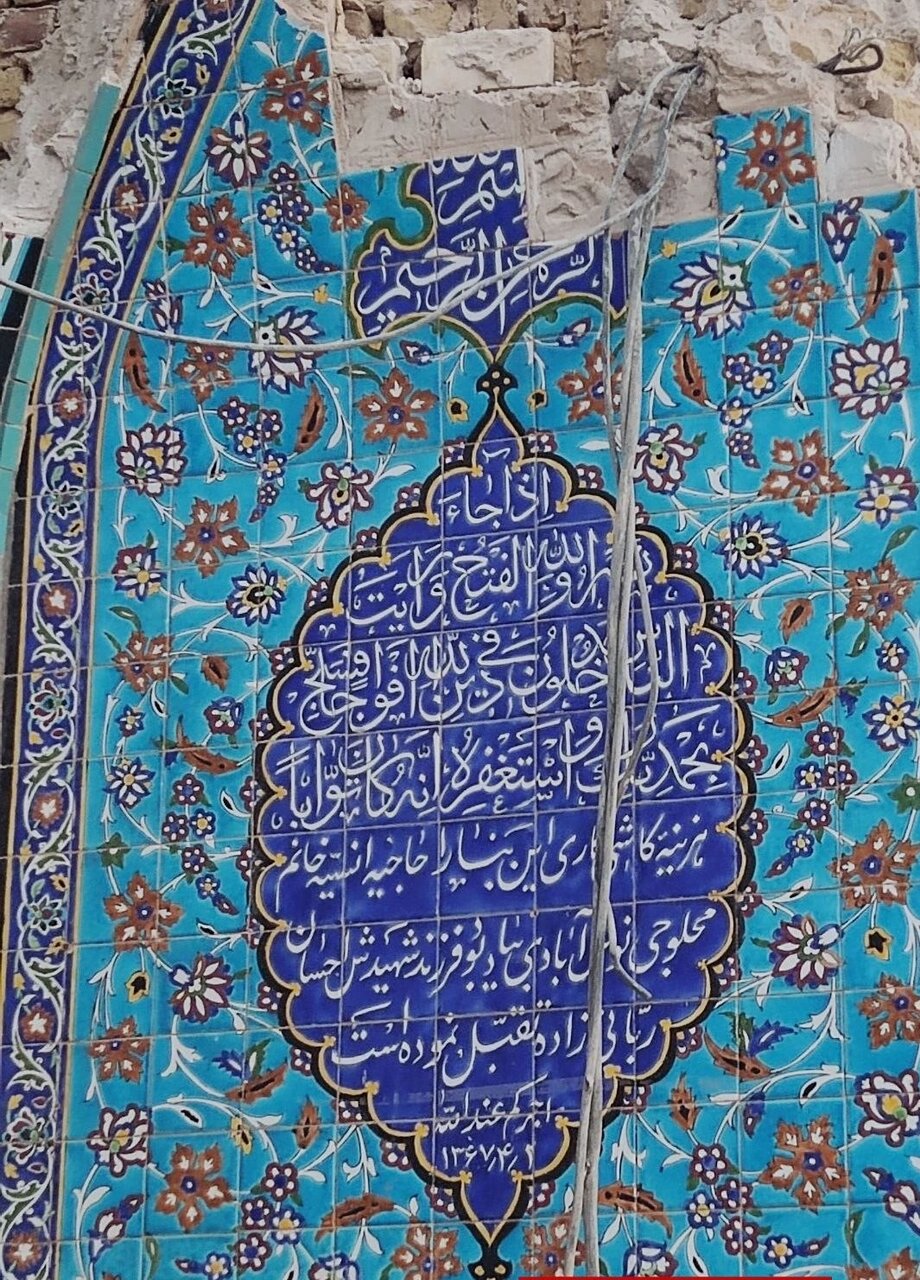 بسم الله
الرحمن الرحیم
اذا جاء
نصرالله والفتح ورایت
الناس یدخلون فی دین الله افواجا فسبح
بحمد ربک و استغفره انه کان توّاباً
هزینه کاشی کاری این بنا را حاجیه انسیه خانم
محلوجی آبادی بیاد بود فرزند شهیدش احسان
ربّانی زاده تقبّل نموده است
اجرکم عندالله
۱۳۶۷/۴/۱